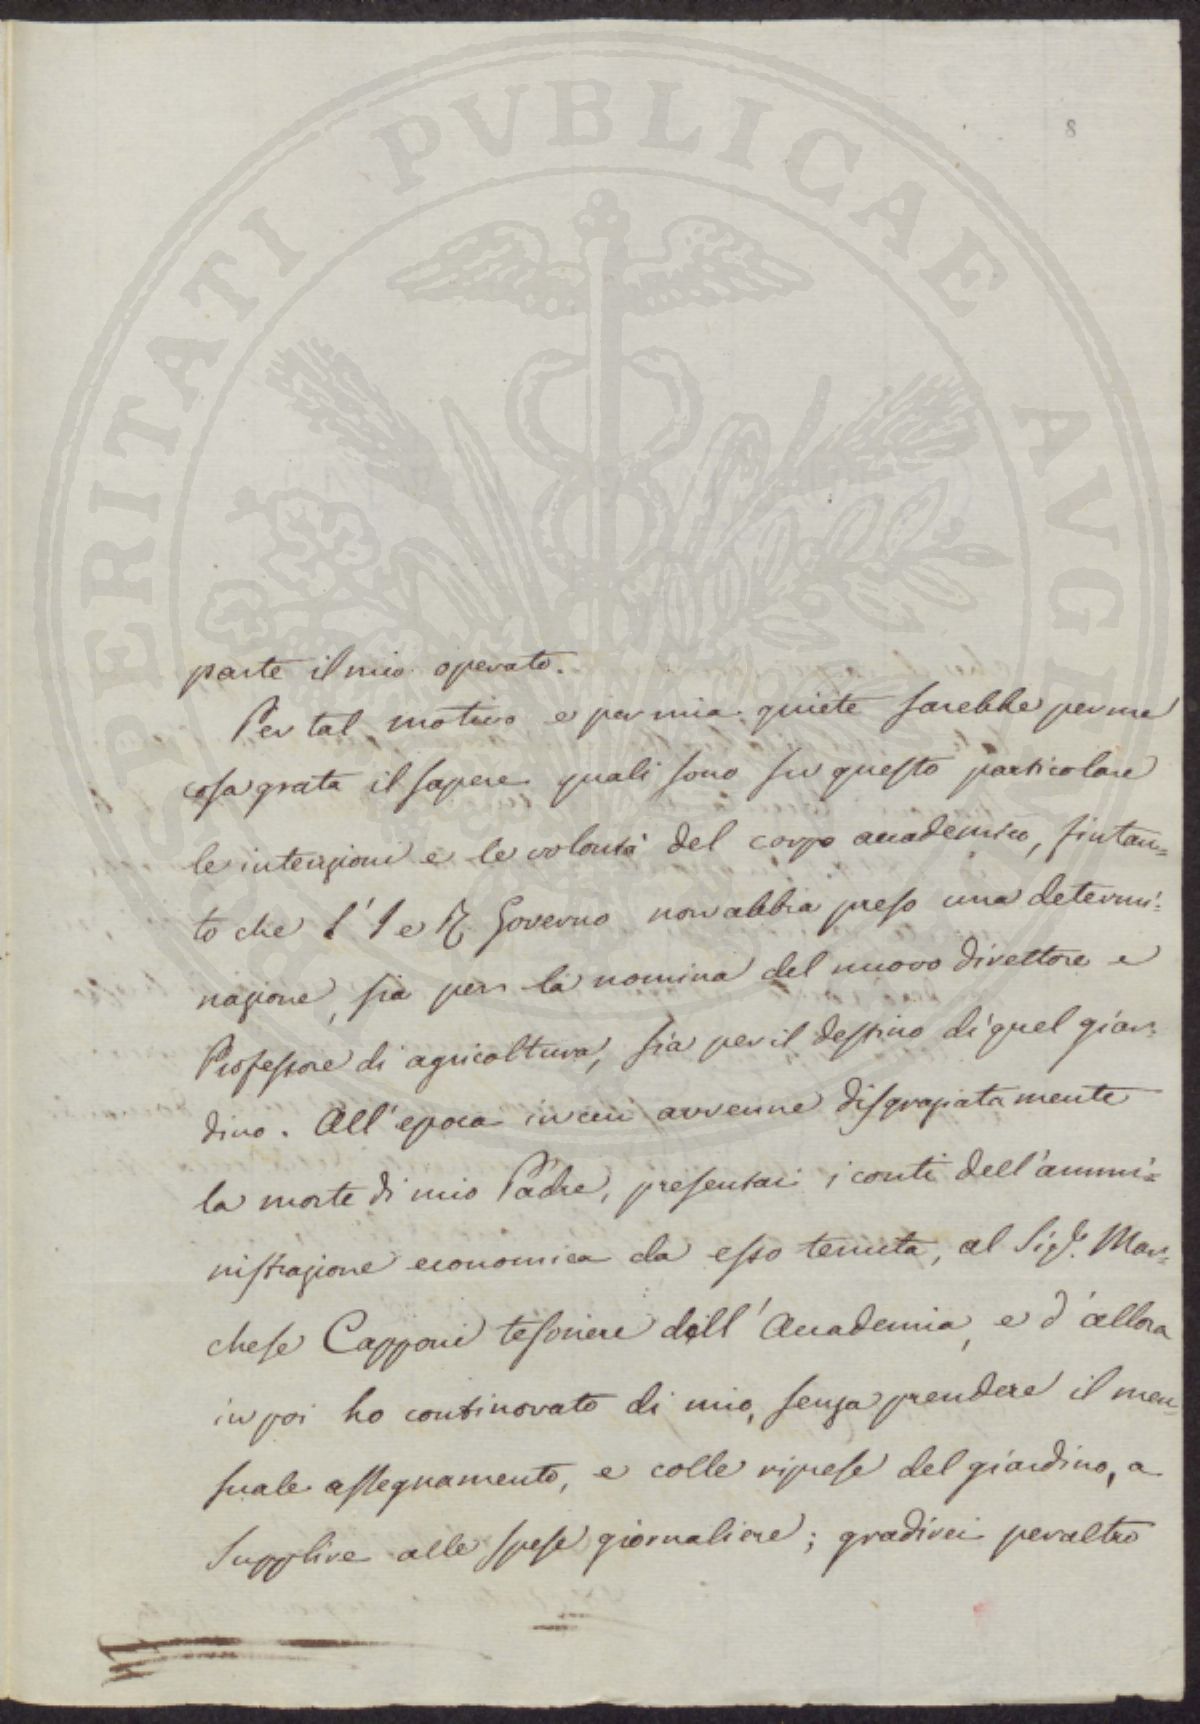 PROSPERITATI PVBLICAE AVGENDAE
8
parte il mio operato.
Per tal motivo e per mia quiete sarebbe per me
cosa grata il sapere quali sono su questo particolare
le intenzioni e le volontà del corpo accademico, fintan=
to che l'I e R. Governo non abbia preso una determi=
nazione, sia per la nomina del nuovo direttore e
Professore di agricoltura, sia per il destino di quel giar=
dino. All'epoca in cui avvenne disgraziatamente
la morte di mio Padre, presentai i conti dell'ammi=
nistrazione economica da esso tenuta, al Sigr. Mar=
chese Capponi tesoriere dell'Accademia, e d'allora
in poi ho continovato di mio, senza prendere il men=
suale assegnamento, e colle riprese del giardino, a
supplire alle spese giornaliere; gradirei peraltro